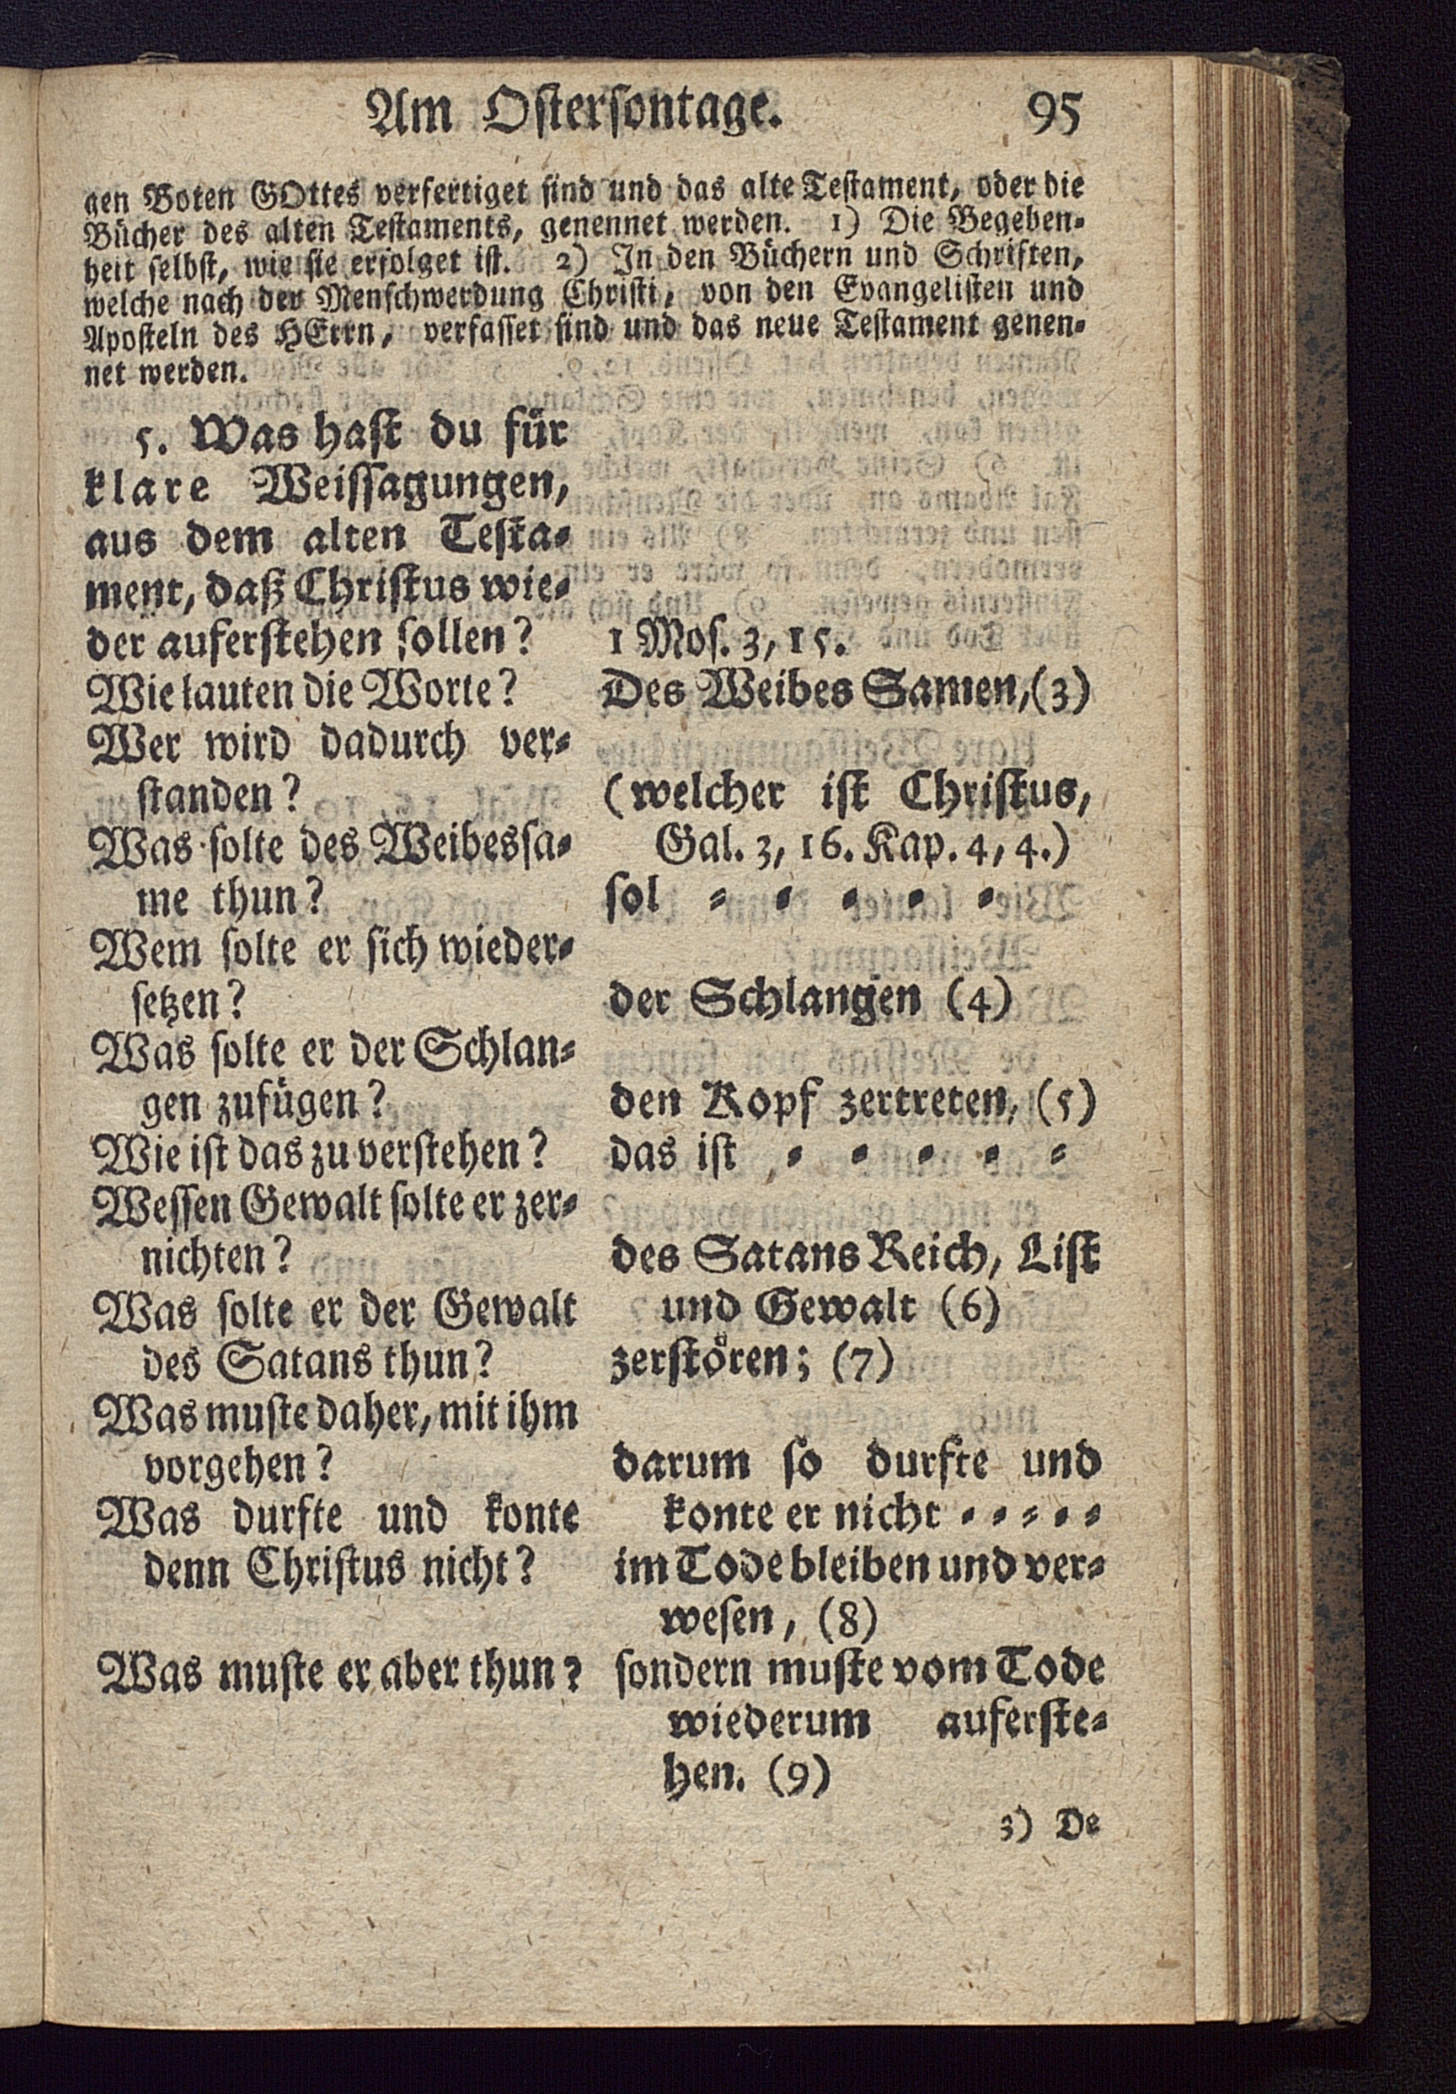 Am Ostersontage. 95
gen Boten GOttes verfertiget sind und das alte Testament, oder die
Bücher des alten Testaments, genennet werden. 1) Die Begeben-
heit selbst, wie sie erfolget ist. 2) In den Büchern und Schriften,
welche nach der Menschwerdung Christi, von den Evangelisten und
Aposteln des HErrn, verfasset sind und das neue Testament genen-
net werden.
5. Was hast du für
klare Weissagungen,
aus dem alten Testa-
ment, daß Christus wie-
der auferstehen sollen?
Wie lauten die Worte?
Wer wird dadurch ver-
standen?
Was solte des Weibessa-
me thun?
Wem solte er sich wieder-
setzen?
Was solte er der Schlan-
gen zufügen?
Wie ist das zu verstehen?
Wessen Gewalt solte er zer-
nichten?
Was solte er der Gewalt
des Satans thun?
Was muste daher, mit ihm
vorgehen?
Was durfte und konte
denn Christus nicht?
Was muste er aber thun?
1 Mos. 3, 15.
Des Weibes Samen, (3)
(welcher ist Christus,
Gal. 3, 16. Kap. 4, 4.)
sol - - - - -
der Schlangen (4)
den Kopf zertreten, (5)
das ist - - - - -
des Satans Reich, List
und Gewalt (6)
zerstören; (7)
darum so durfte und
konte er nicht - - - - -
im Tode bleiben und ver-
wesen, (8)
sondern muste vom Tode
wiederum auferste-
hen. (9)
3) De